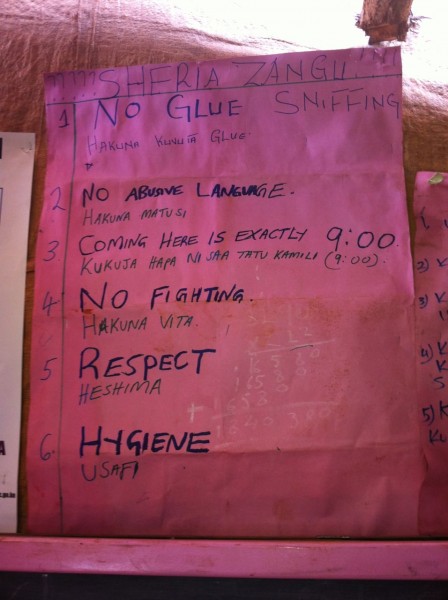 ????SHERIA ZANGU!!!!
1 NO GLUE SNIFFING
HAKUNA KUVUTA GLUE.
2 NO ABUSIVE LANGUAGE.
HAKUNA MATUSI
3 COMING HERE IS EXACTLY 9:00.
KUKUJA HAPA NI SAA TATU KAMILI (9:00).
4 NO FIGHTING.
HAKUNA VITA.
5 RESPECT
HESHIMA
6. HYGIENE
USAFI
2) K
3) K
4) K
K
S
5) K